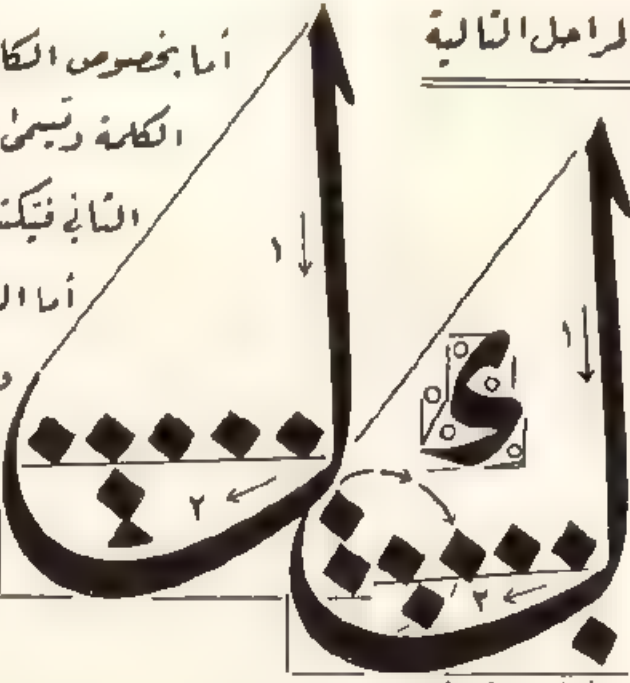 لمراحل التالية
أما بخصوص الكا
الكلمة وتسمى
الثاني فتكت
أما ال
و
ل
١
٢
ل
١
٢
ى